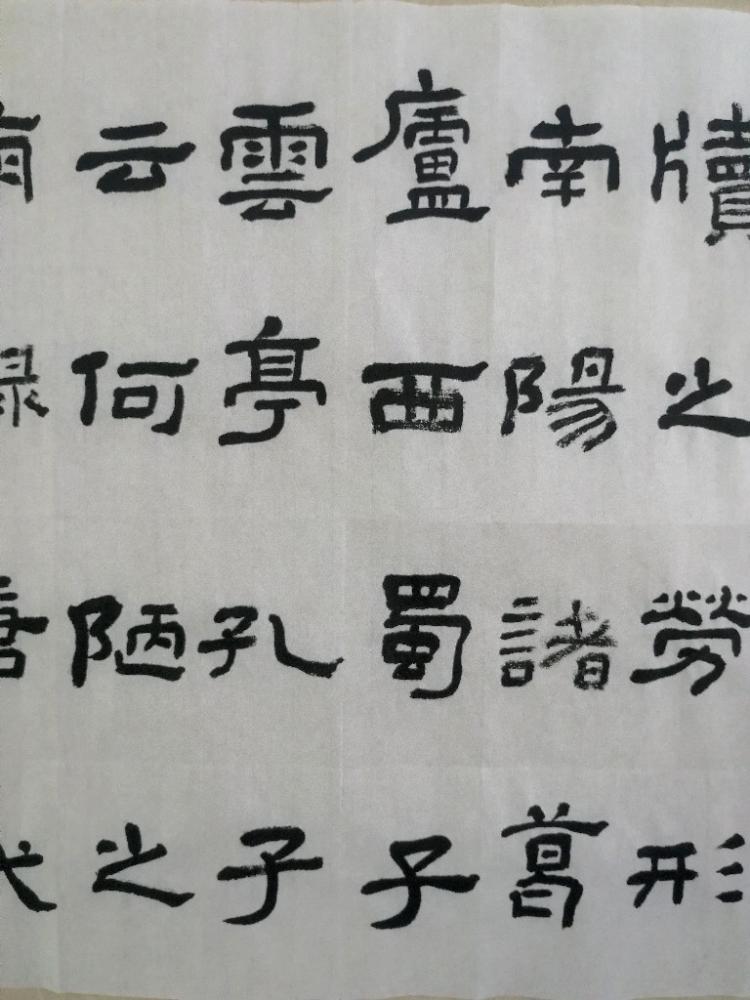 牘之勞形
南陽諸葛
廬西蜀子
雲亭孔子
云何陋之
右錄唐代